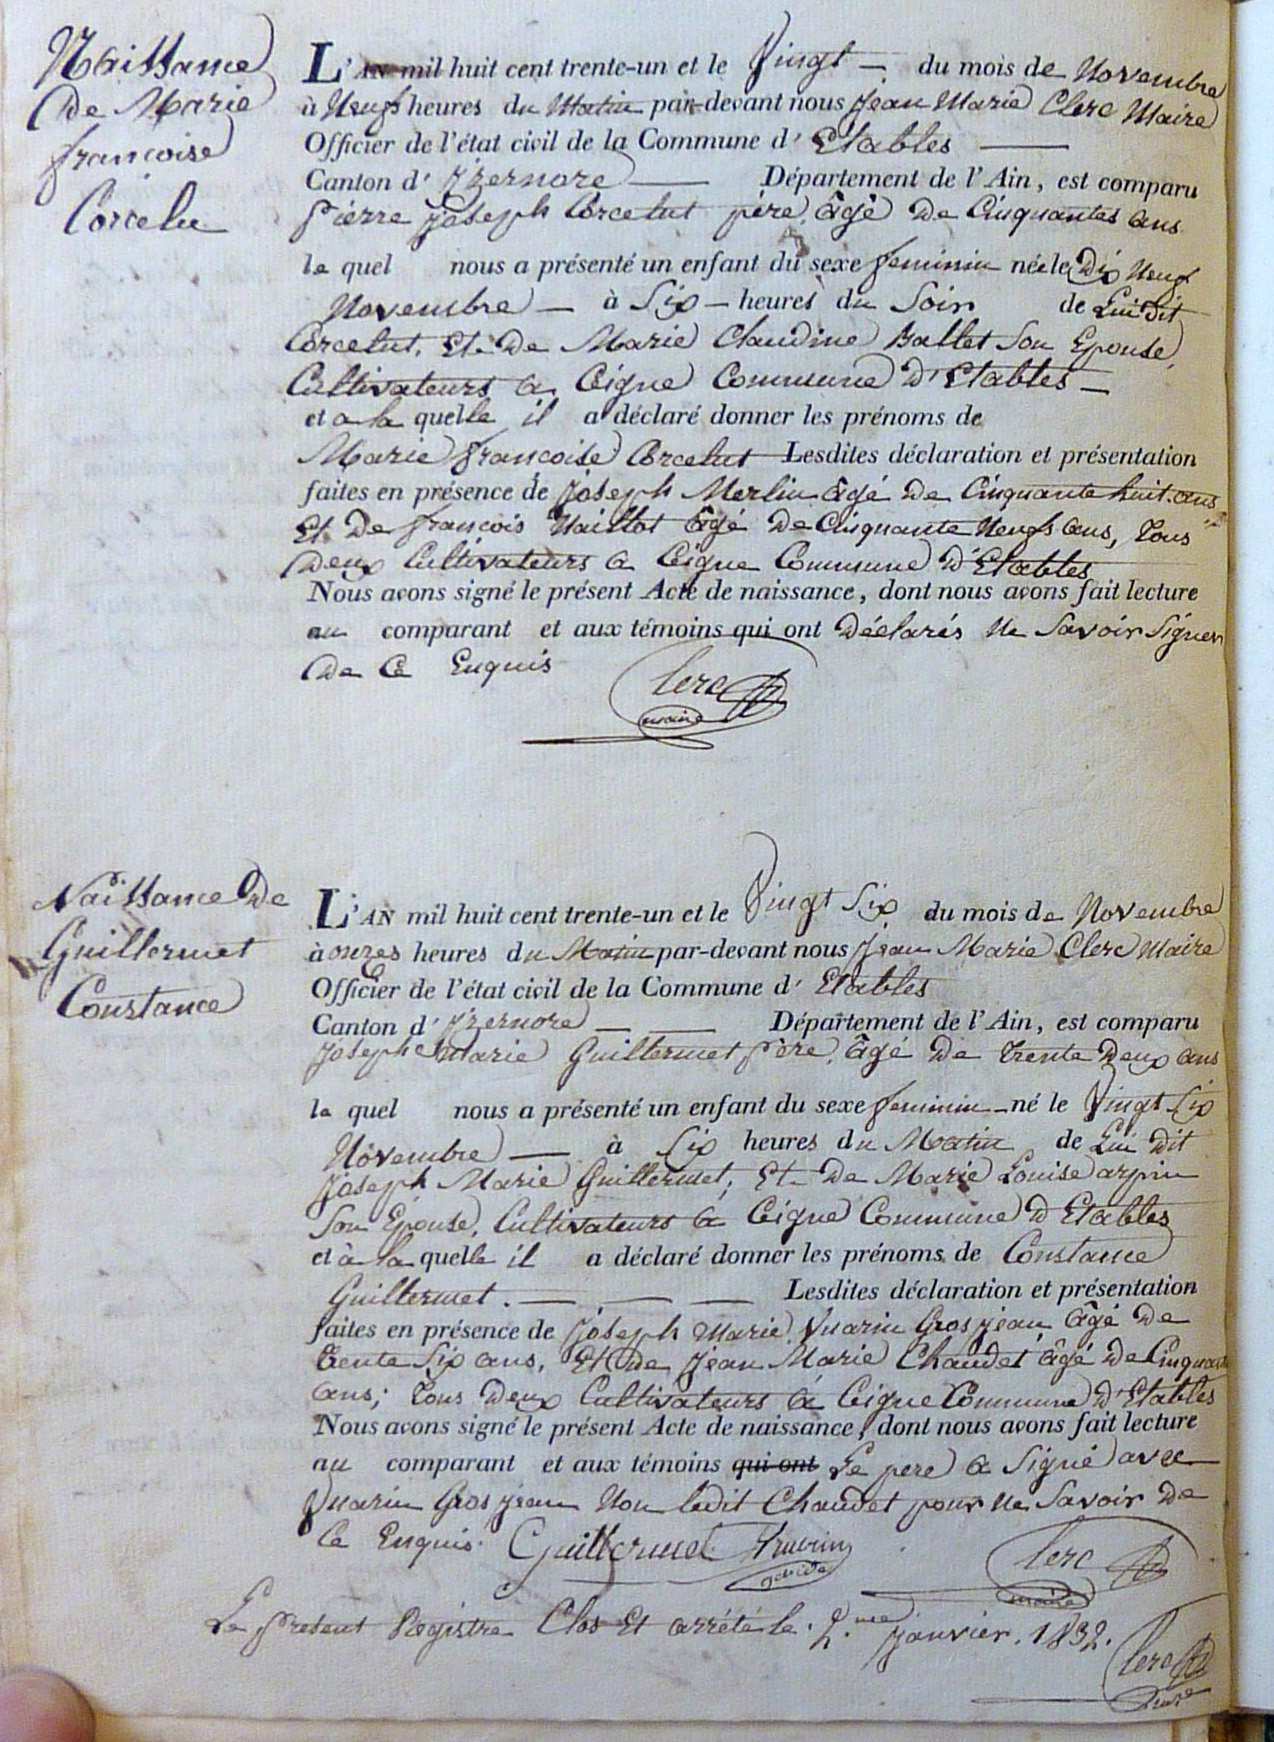 Naissance
De Marie
françoise
Corcelu
L'AN mil huit cent trente-un et le Vingt — du mois de Novembre
à Neufs heures du Matin par-devant nous Jean Marie Clerc Maire
Officier de l'état civil de la Commune d' Etables —
Canton d' Jzernore — Département de l'Ain, est comparu
Pierre Joseph Corcelut père, âgé De Cinquantes ans
le quel nous a présenté un enfant du sexe feminin née le Dix Neuf
Novembre — à Six — heures du Soir de Lui Dit
Corcelut, Et De Marie Claudine Ballet Son Epouse,
Cultivateurs a Ceigne Commune D'Etables —
et a la quelle il a déclaré donner les prénoms de
Marie françoise Corcelut Lesdites déclaration et présentation
faites en présence de Joseph Merlin âgé De Cinquante huit ans,
Et De françois Vaillot âgé De Cinquante Neufs ans, Tous
Deux Cultivateurs a Ceigne Commune D'Etables
Nous avons signé le présent Acte de naissance, dont nous avons fait lecture
au comparant et aux témoins qui ont Déclarés Ne Savoir Signer
De Ce Enquis
Clerc
maire
Naissance De
Guillermet
Constance
L'AN mil huit cent trente-un et le Vingt Six du mois de Novembre
à onzes heures du Matin par-devant nous Jean Marie Clerc Maire
Officier de l'état civil de la Commune d' Etables
Canton d' Jzernore — — Département de l'Ain, est comparu
Joseph Marie Guillermet Père, âgé De Trente Deux ans
le quel nous a présenté un enfant du sexe feminin né le Vingt Six
Novembre — à Six heures du Matin de Lui Dit
Joseph Marie Guillermet, Et De Marie Louise arpin
Son Epouse, Cultivateurs a Ceigne Commune D Etables
et à la quelle il a déclaré donner les prénoms de Constance
Guillermet. — — — Lesdites déclaration et présentation
faites en présence de Joseph Marie Vuarin Grosjean âgé De
Trente Six ans, Et De Jean Marie Chaudet âgé De Cinquante
ans; Tous Deux Cultivateurs a Ceigne Commune D'Etables
Nous avons signé le présent Acte de naissance, dont nous avons fait lecture
au comparant et aux témoins qui ont Le pere a Signé avec
Vuarin Grosjean Non ledit Chaudet pour Ne Savoir De
Ce Enquis. Guillermet Clerc
maire
Le Present Registre Clos Et arrété le 2.me Janvier. 1832.
Clerc